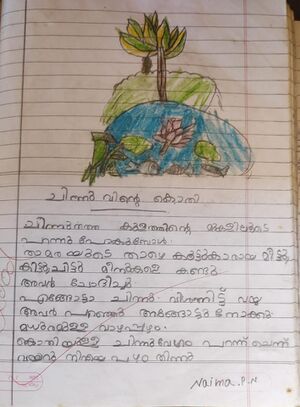 ചിന്നുവിന്റെ കൊതി
ചിന്നുതത്ത കുളത്തിന്റെ മുകളിലൂടെ
പറന്നു പോകുമ്പോൾ.
താമരയുടെ താഴെ കൂട്ടുകാരായ മീട്ടു
കിട്ടു ചിട്ടു മീനുകളെ കണ്ടു.
അവർ ചോദിച്ചു
എങ്ങോട്ടാ ചിന്നു. വിശന്നിട്ട് വയ്യ
അവർ പറഞ്ഞു അങ്ങോട്ടു നോക്കൂ.
മധുരമുള്ള വാഴപ്പഴം.
കൊതിയുള്ള ചിന്നുവേഗം പറന്ന് ചെന്ന്
വയറു നിറയെ പഴം തിന്നു
Naima. P. N